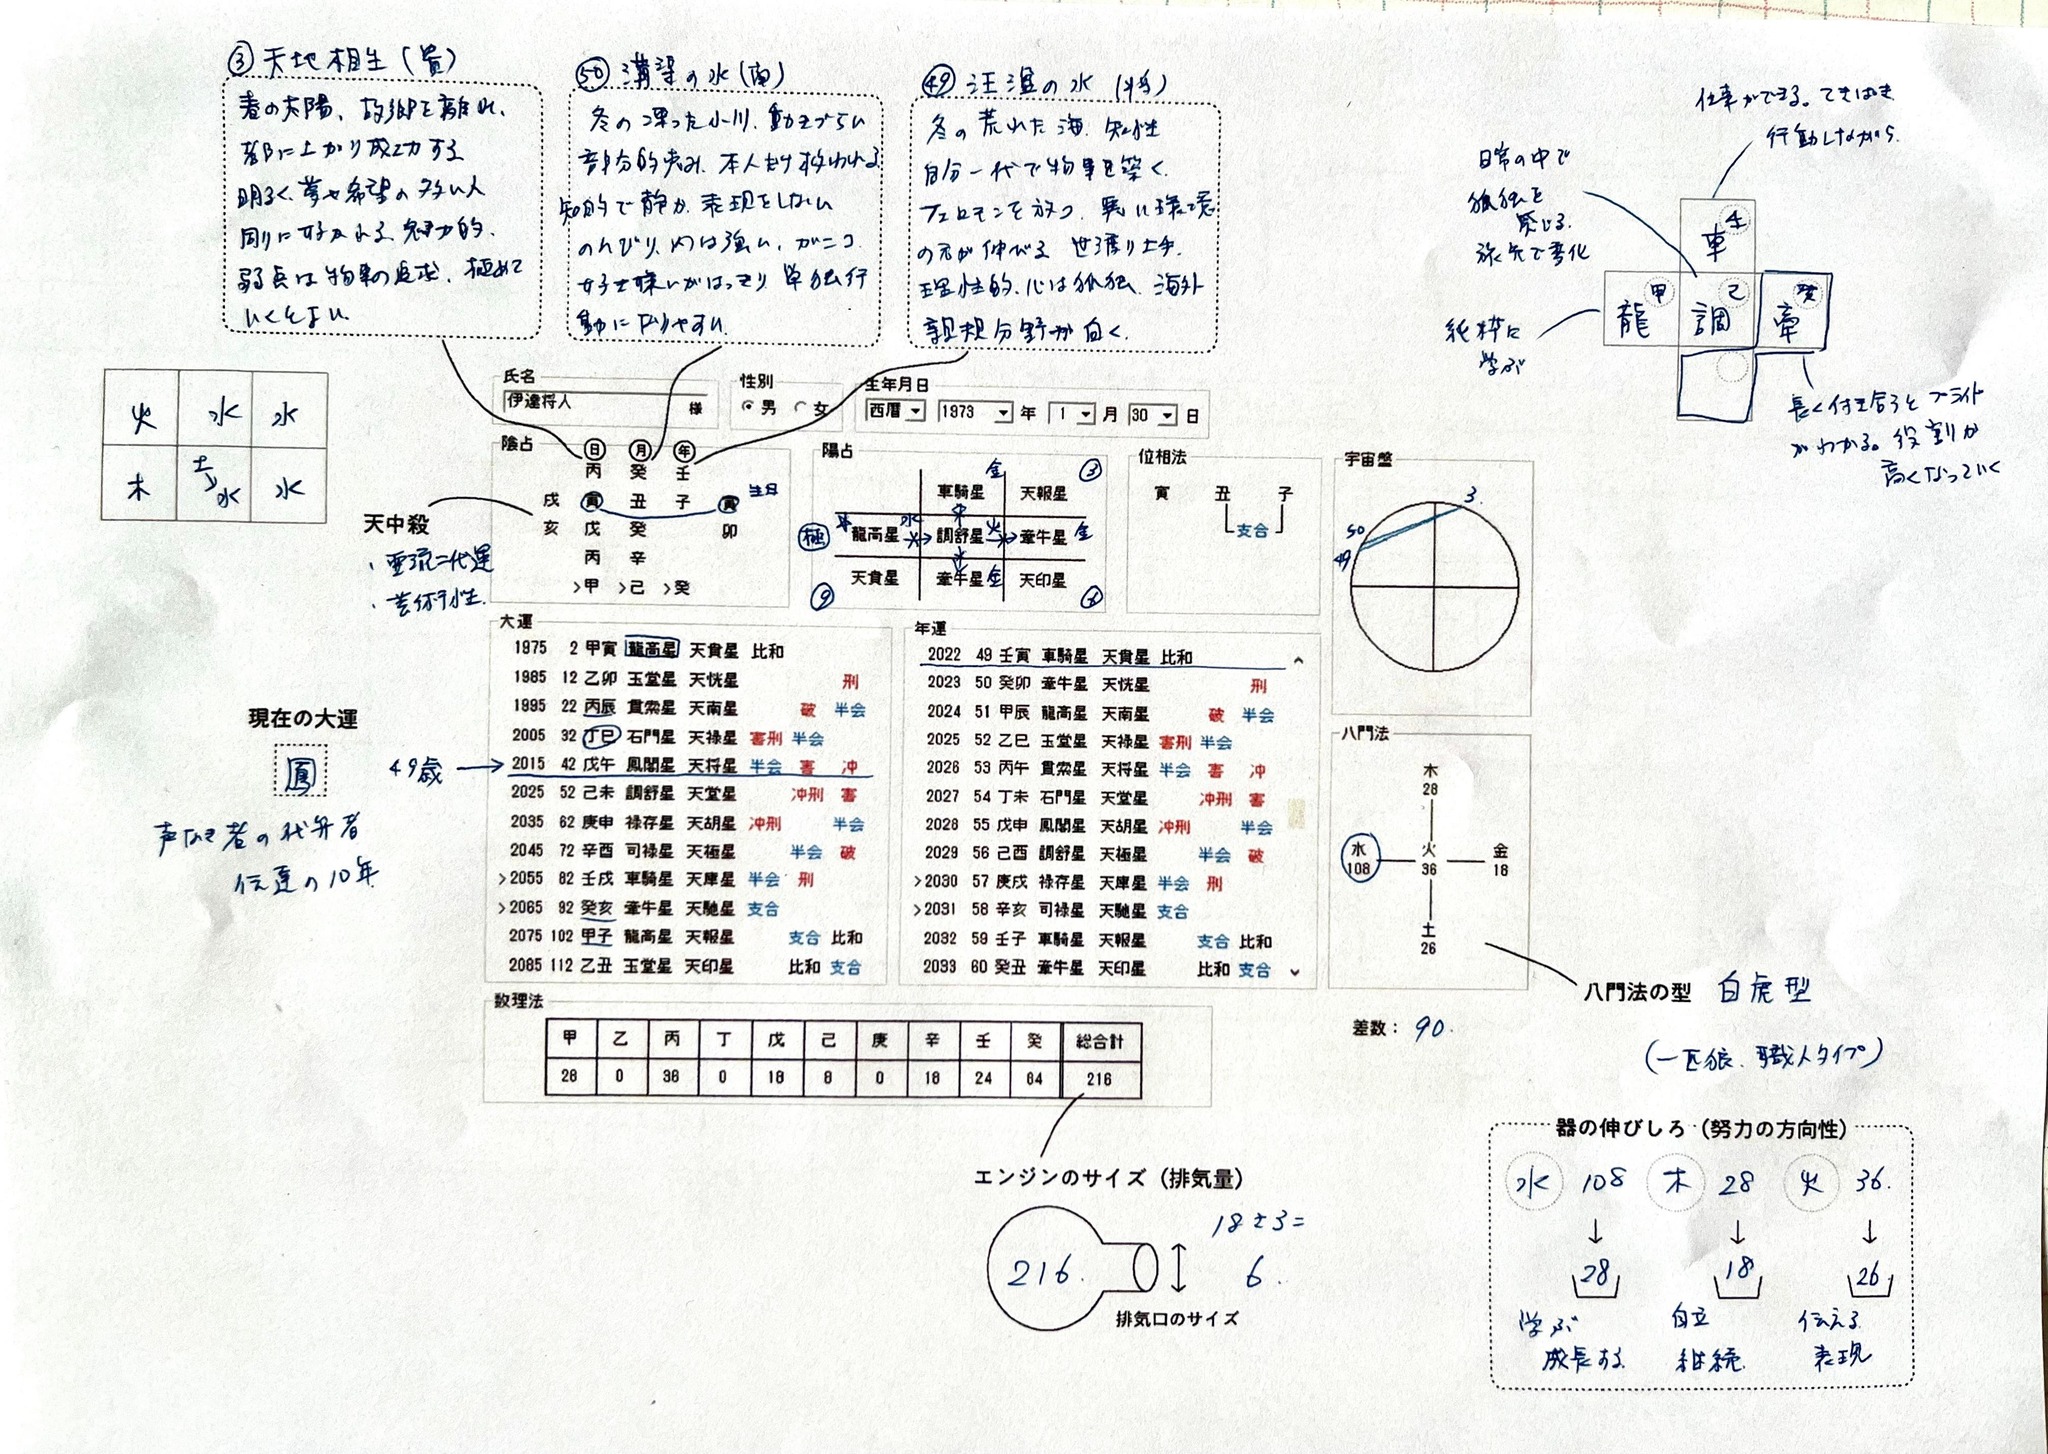 ③ 天地相生（貴）
春の太陽、故郷を離れ、
都に上がり成功する
明るく、夢や希望の多い人
周りに好かれる、魅力的、
弱点は物事の追求、極めて
いくとよい
㊿ 溝渠の水（南）
冬の凍った小川、動きづらい
部分的歪み、本人だけ救われる
知的で静か、表現をしない
のんびり、内は強い、ガンコ
好き嫌いがはっきり 単独行
動になりやすい
㊾ 汪洋の水（将）
冬の荒れた海、知性
自分一代で物事を築く、
フェロモンを放つ、悪い環境
の方が伸びる 世渡り上手
理性的、心は孤独、海外
親規分野が向く、
仕事ができる。てきぱき
行動しながら
日常の中で
孤独を
感じる、
旅先で変化
純粋に
学ぶ
車 壬
龍 甲 調 己 牽 癸
長く付き合うとプライド
がわかる。役割が
高くなっていく
火 水 水
木 土 水 水
氏名
伊達将人 様
性別
男 女
生年月日
西暦 1973 年 1 月 30 日
陰占
日 月 年
丙 癸 壬
戌 寅 丑 子 寅 生月
亥 戊 癸 卯
丙 辛
>甲 >己 >癸
天中殺
・亜流二代運
・芸術性
陽占
金 ③
車騎星 天報星
極 龍高星 水 調舒星 火 牽牛星 金
天貴星 牽牛星 金 天印星
⑨ ⑥
位相法
寅 丑 子
支合
宇宙盤
3
50
49
大運
1975 2 甲寅 龍高星 天貴星 比和
1985 12 乙卯 玉堂星 天恍星 刑
1995 22 丙辰 貫索星 天南星 破 半会
2005 32 丁巳 石門星 天禄星 害刑 半会
2015 42 戊午 鳳閣星 天将星 半会 害 冲
2025 52 己未 調舒星 天堂星 冲刑 害
2035 62 庚申 禄存星 天胡星 冲刑 半会
2045 72 辛酉 司禄星 天極星 半会 破
>2055 82 壬戌 車騎星 天庫星 半会 刑
>2065 92 癸亥 牽牛星 天馳星 支合
2075 102 甲子 龍高星 天報星 支合 比和
2085 112 乙丑 玉堂星 天印星 比和 支合
年運
2022 49 壬寅 車騎星 天貴星 比和
2023 50 癸卯 牽牛星 天恍星 刑
2024 51 甲辰 龍高星 天南星 破 半会
2025 52 乙巳 玉堂星 天禄星 害刑 半会
2026 53 丙午 貫索星 天将星 半会 害 冲
2027 54 丁未 石門星 天堂星 冲刑 害
2028 55 戊申 鳳閣星 天胡星 冲刑 半会
2029 56 己酉 調舒星 天極星 半会 破
>2030 57 庚戌 禄存星 天庫星 半会 刑
>2031 58 辛亥 司禄星 天馳星 支合
2032 59 壬子 車騎星 天報星 支合 比和
2033 60 癸丑 牽牛星 天印星 比和 支合
現在の大運
鳳
49歳 →
声なき者の代弁者
伝達の10年
八門法
木
28
水 火 金
108 36 18
土
26
八門法の型 白虎型
差数： 90.
（一匹狼、職人タイプ）
数理法
甲 乙 丙 丁 戊 己 庚 辛 壬 癸 総合計
28 0 36 0 18 8 0 18 24 84 216
エンジンのサイズ（排気量）
216.
18÷3=
6.
排気口のサイズ
器の伸びしろ（努力の方向性）
水 108 木 28 火 36.
↓ ↓ ↓
28 18 26
学ぶ 自立 伝える
成長する 継続 表現